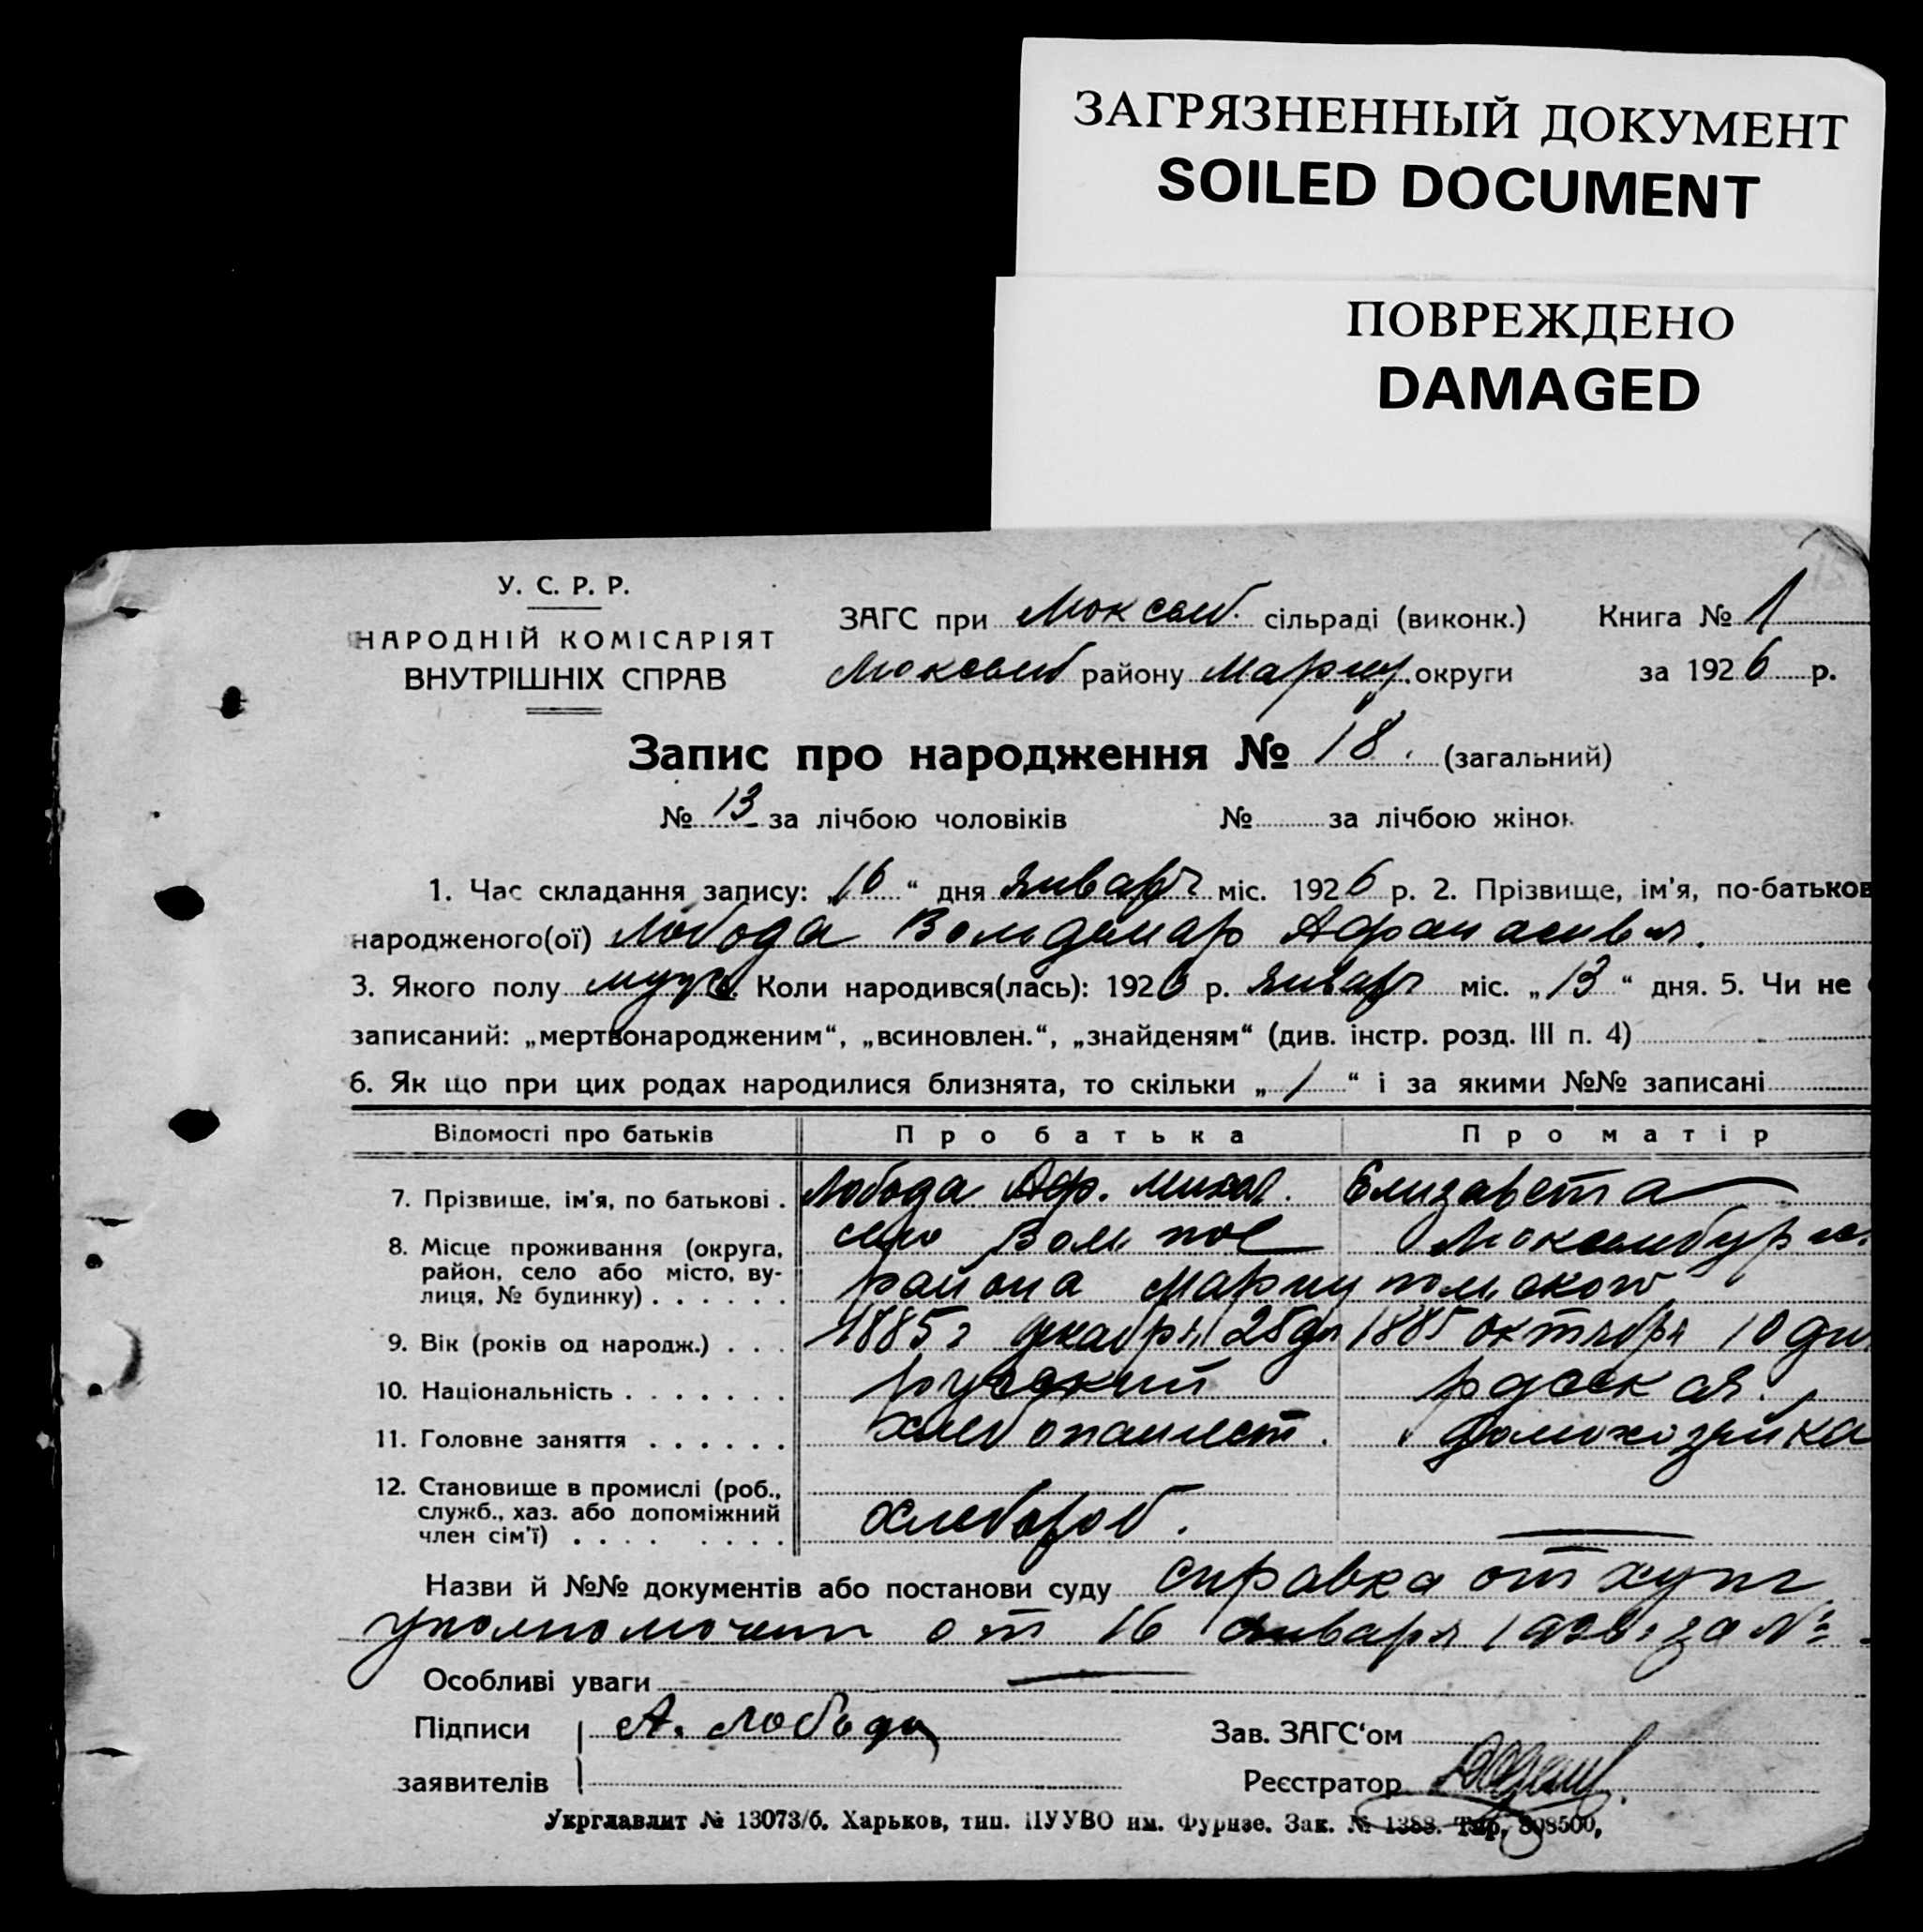 ЗАГРЯЗНЕННЫЙ ДОКУМЕНТ
SOILED DOCUMENT
ПОВРЕЖДЕНО
DAMAGED
У. С. Р. Р.
НАРОДНІЙ КОМІСАРІЯТ
ВНУТРІШНІХ СПРАВ
ЗАГС при Люксемб. сільраді (виконк.) Книга № 1
Люксемб району Мариуп. округи за 1926 р.
Запис про народження № 18. (загальний)
№ 13 за лічбою чоловіків № за лічбою жінок
1. Час складання запису: „16“ дня января міс. 1926 р. 2. Прізвище, ім'я, по-батьков
народженого(ої) Лобода Вольдемар Афанасивич.
3. Якого полу муж. Коли народився(лась): 1926 р. января міс. „13“ дня. 5. Чи не
записаний: „мертвонародженим“, „всиновлен.“, „знайденям“ (див. інстр. розд. III п. 4)
6. Як що при цих родах народилися близнята, то скільки „1“ і за якими №№ записані
Відомості про батьків Про батька Про матір
7. Прізвище, ім'я, по батькові . Лобода Аф. Михай. Елизавета
8. Місце проживання (округа, село Люксембург
район, село або місто, ву- района Мариупольского
лиця, № будинку) . . . . . .
9. Вік (років од народж.) . . . 1885 г декабря 25 дн 1885 октября 10 дн
10. Національність . . . . . . . русский русская.
11. Головне заняття . . . . . . хлебопашест. домохозяйка
12. Становище в промислі (роб.,
служб., хаз. або допоміжний хлебороб.
член сім'ї) . . . . . . . .
Назви й №№ документів або постанови суду справка от
уполномочен от 16 января за №
Особливі уваги
Підписи А. Лобода Зав. ЗАГС'ом
заявителів Реєстратор
Укрглавлит № 13073/б. Харьков, тип. ПУУВО им. Фрунзе. Зак. № 1388. Тир. 808500,